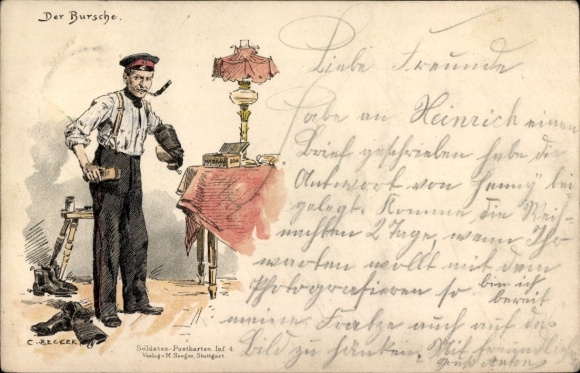 Der Bursche.
Liebe Freunde
Habe an Heinrich einen
Brief geschrieben habe die
Antwort von Henny bei
gelegt. Komme die Weih-
nachten 2 Tage, wenn Ihr
warten wollt mit dem
Photografieren so bin ich
bereit
meine Fratze auch auf das
Bild zu hänken. Mit freundlich
Gruß Anton
C. BECKER
Soldaten-Postkarten. Inf. 4.
Verlag v. M. Seeger, Stuttgart.